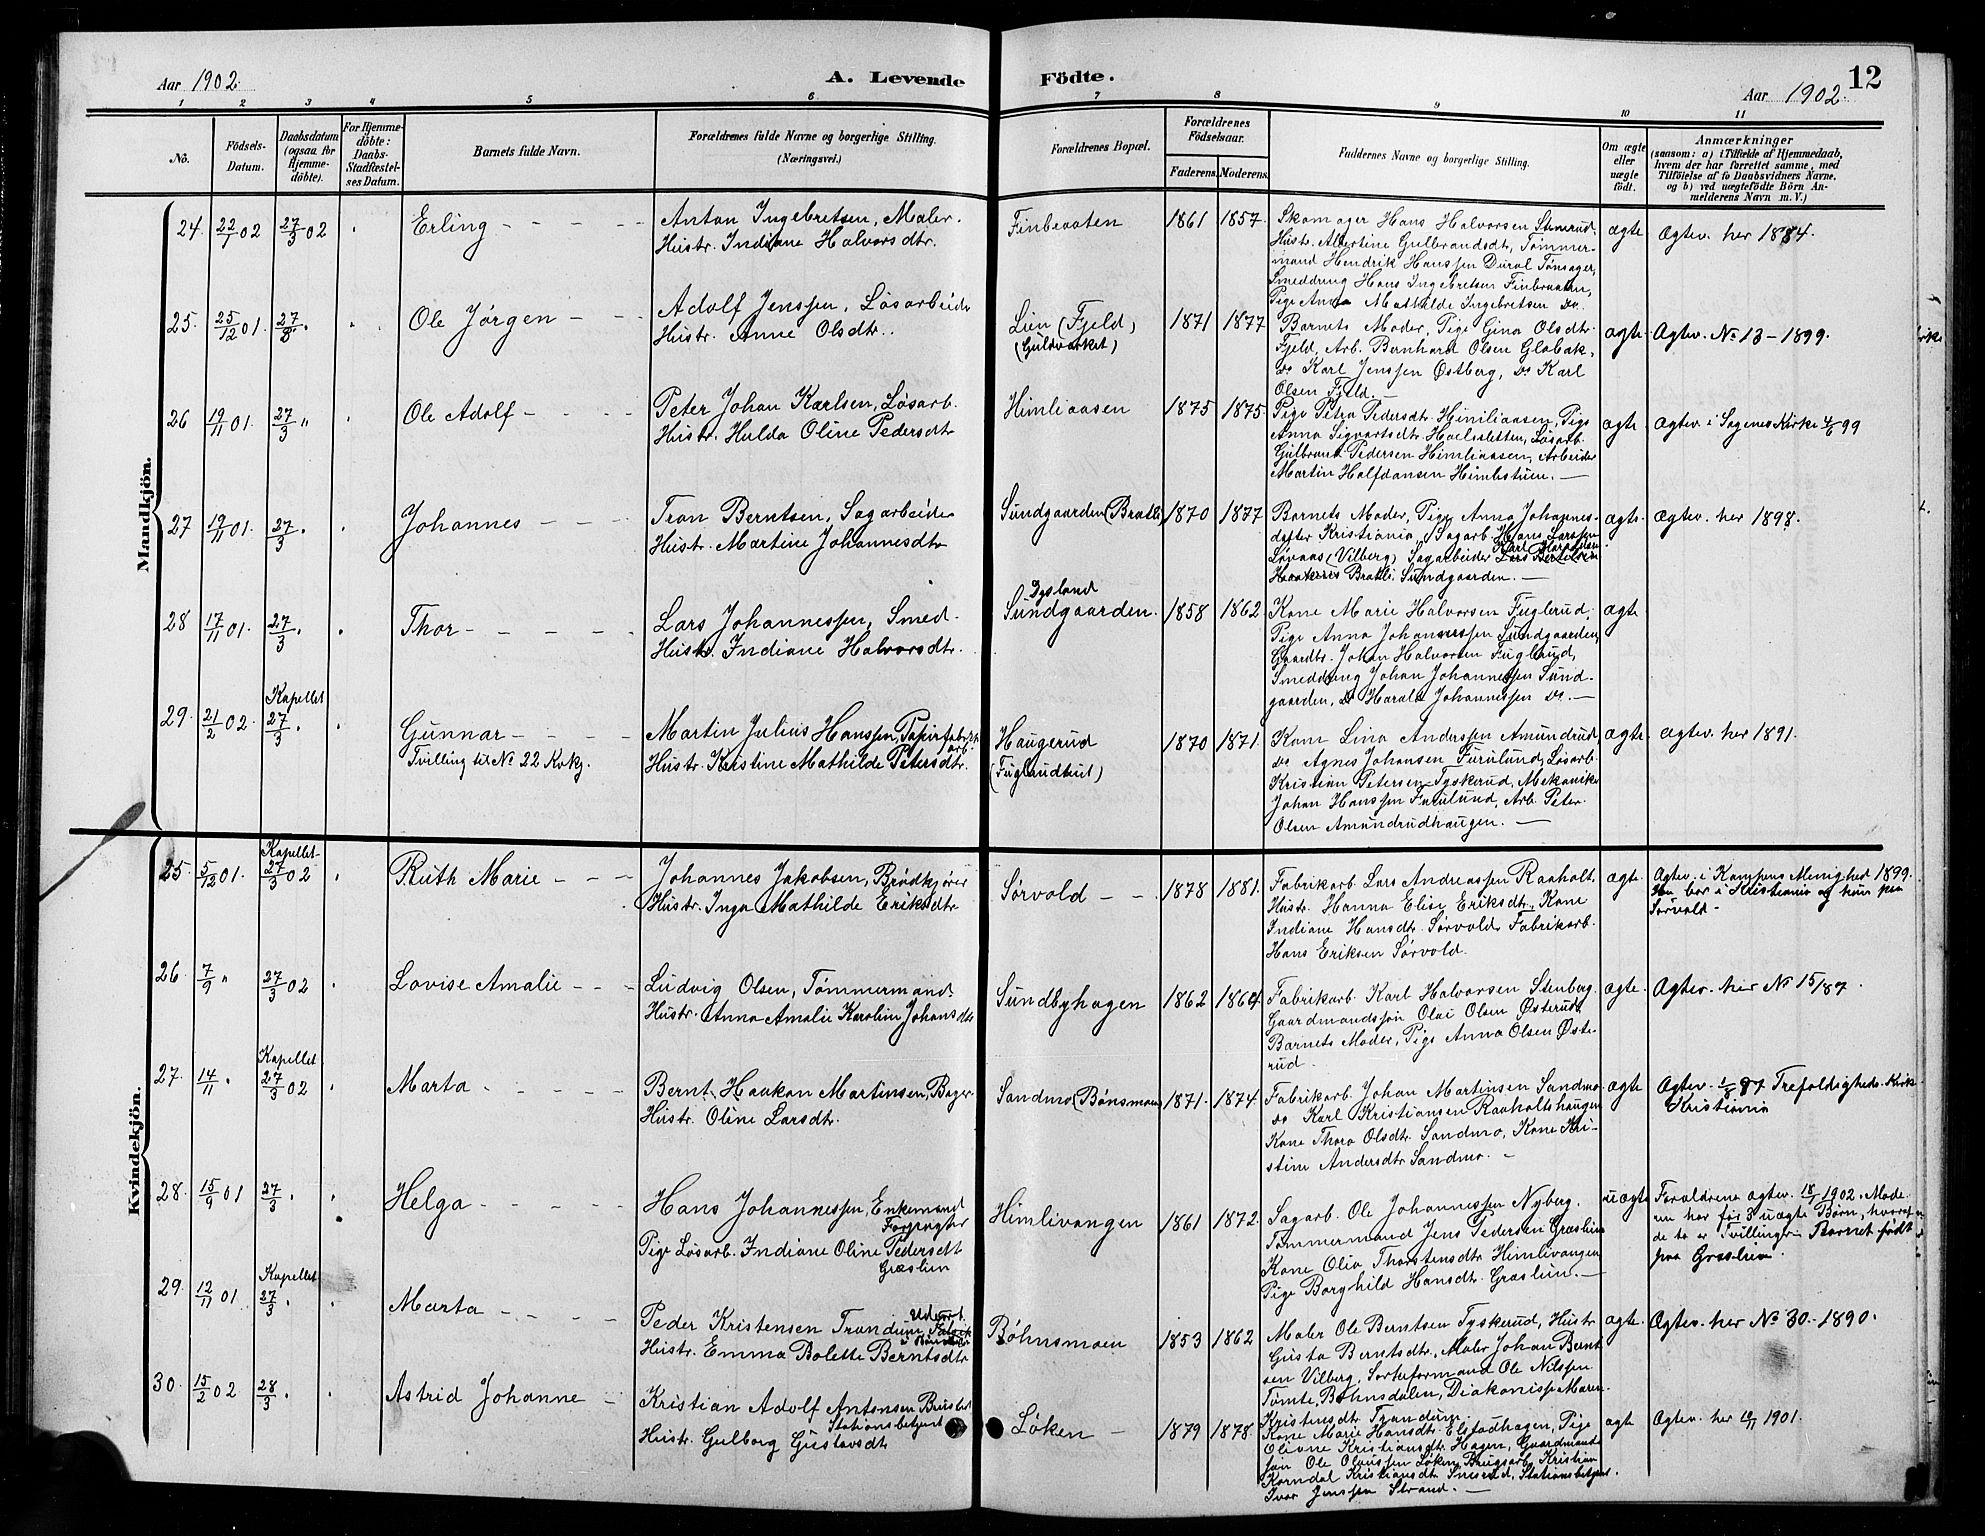 Aar 1902.
A. Levende
Födte.
12
Aar 1902.
1 2 3 4 5 6 7 8 9 10 11
No.
Födsels-
Datum.
Daabsdatum
(ogsaa for
Hjemme-
döbte).
For Hjemme-
döbte:
Daabs-
Stadfæstel-
ses Datum.
Barnets fulde Navn.
Forældrenes fulde Navne og borgerlige Stilling.
(Næringsvei.)
Forældrenes Bopæl.
Forældrenes
Födselsaar.
Faderens.
Moderens.
Faddernes Navne og borgerlige Stilling.
Om ægte
eller
uægte
födt.
Anmærkninger
(saasom: a) i Tilfælde af Hjemmedaab,
hvem der har forrettet samme, med
Tilföielse af to Daabsvidners Navne,
og b) ved uægtefödte Börn An-
melderens Navn m. V.)
Mandkjön.
24. 22/1 02 27/3 02 Erling
Anton Ingebretsen, Maler.
Hustr. Indiane Halvorsdtr.
Finbraaten 1861 1857.
Skomager Hans Halvorsen Stenrud,
Hustr. Albertine Gulbrandsdt, Tømmer-
mand Hendrik Hanssen Dural Tønsager,
Smeddreng Hans Ingebretsen Finbraaten,
Pige Anna Mathilde Ingebretsen do.
ægte Ægtev. her 1884.
25. 25/12 01. 27/3. Ole Jørgen
Adolf Jenssen, Løsarbeider
Hustr. Anne Olsdtr.
Lien (Fjeld)
(Guldværket)
1871 1877
Barnets Moder, Pige Gina Olsdtr.
Fjeld, Arb. Bernhard Olsen Globak,
do Karl Jenssen Østberg, do Karl
Olsen Fjeld.
ægte. Ægtev. No 13 - 1899.
26 19/11 01. 27/3 " Ole Adolf
Peter Johan Karlsen, Løsarb.
Hustr. Hulda Oline Pedersdtr
Himliaasen 1875 1875.
Pige Petra Pedersdt. Himliaasen, Pige
Anna Sigvartsdt. Hoelsletten, Løsarb.
Gulbrand Pedersen Himliaasen, Arbeider
Martin Halfdansen Himlistuen.
ægte Ægtev. i Sagenes Kirke 4/6 99
27 19/11 01. 27/3. Johannes
Tron Berntsen, Sagarbeider
Hustr. Martine Johannesdtr
Sundgaarden (Bratli) 1870 1877
Barnets Moder, Pige Anna Johannes-
datter Kristiania, Sagarb. Hans Larssen
Løvaas (Vilberg) Sagarbeider
Bratli, Sundgaarden.
ægte. Ægtev. her 1898.
28 17/11 01. 27/3. Thor
Lars Johannessen, Smed.
Hustr. Indiane Halvorsdtr.
Dysland
Sundgaarden. 1858 1862.
Kone Marie Halvorsen Fuglerud,
Pige Anna Johannessen Sundgaarden,
Gaardbr. Johan Halvorsen Fuglerud,
Smeddreng Johan Johannessen Sund-
gaarden, do Harald Johannessen do.
ægte
29. 21/2 02. Kapellet 27/3. Gunnar
Tvilling til No 22 Kvkj.
Martin Julius Hanssen, Papirfabrik
arb.
Hustr. Kirstine Mathilde Petersdtr.
Haugerud
(Fuglaudhut)
1870 1871.
Kone Lina Anderssen Amundrud,
do Agnes Johansen Furulund, Løsarb.
Kristian Petersen Tyskerud, Mekaniker
Johan Hanssen Furulund, Arb. Peter
Olsen Amundrudhaugen.
ægte. Ægtev. her 1891.
Kvindekjön.
25. 5/12 01. Kapellet 27/3 02 Ruth Marie
Johannes Jakobsen, Brødkjører
Hustr. Inga Mathilde Eriksdtr
Sørvold 1878 1881.
Fabrikarb. Lars Andreassen Raaholt.
Hustr. Hanna Elise Eriksdtr., Kone
Indiane Hansdt. Sørvold, Fabrikarb.
Hans Eriksen Sørvold.
ægte. Ægtev. i Kampens Menighed 1899.
bor i Kristiania og kun paa
Sørvold -
26 7/9 " 27/3 02 Lovise Amalie
Ludvig Olsen, Tømmermand.
Hustr. Anna Amalie Karoline Johansdtr
Sundbyhagen 1862 1864
Fabrikarb. Karl Halvorsen Stenberg.
Gaardmandssøn Olai Olsen Østerud,
Barnets Moder, Pige Anna Olsen Øste-
rud.
ægte. Ægtev. her No 15/87.
27. 14/11 " Kapellet 27/3 02 Marta
Bernt Haakon Martinsen, Bager
Hustr. Oline Larsdtr.
Sandmo (Bønsmoen) 1871. 1874.
Fabrikarb. Johan Martinsen Sandmo
do Karl Kristiansen Raaholtshaugen
Kone Thora Olsdtr. Sandmo, Kone Kri-
stine Andersdtr Sandmo.
ægte Ægtev. 1/8 97 Trefoldigheds. Kirk
Kristiania
28. 15/9 01 27/3. Helga
Hans Johannessen, Enkemand
Forpagter
Pige Løsarb. Indiane Oline Pedersdt
Græslien
Himlivangen 1861 1872.
Sagarb. Ole Johannessen Nyberg.
Tømmermand Jens Pedersen Græslien
Kone Olia Thorstensdtr Himlivangen
Pige Borghild Hansdtr. Græslien.
uægte Forældrene ægtev. 18/1 1902. Mode-
ren har før 3 uægte Børn, hvoraf
de to er Tvillinger. Barnet født
paa Græslien.
29. 12/11 01 Kapellet 27/3. Marta
Peder Kristensen Trondum,
Hustr. Emma Bolette Berntsdtr
Bøhnsmoen 1853 1862
Maler Ole Berntsen Tyskerud, Hustr
Gusta Berntsdtr., Maler Johan Bernt
sen Vilberg, Sorteformand Ole Nilssen
Tømte, Bøhnsdalen, Diakonisse Maren
Kristensdtr Trondum.
ægte. Ægtev. her No 30 - 1890.
30. 15/2 02. 28/3. Astrid Johanne
Kristian Adolf Antonsen
Stationsbetjent
Hustr. Gulborg Gustavsdt
Løken 1879 1878.
Kone Marie Hansdt. Elstadhagen, Pige
Olivne Kristiansdtr. Hagen, Gaardmands
søn Ole Olaussen Løken, Brugsarb. Kristian
Korndal Kristiansdt. Snerud, Stationsbetjent.
Ivar Jenssen Strand.
ægte Ægtev. her 10/11 1901.